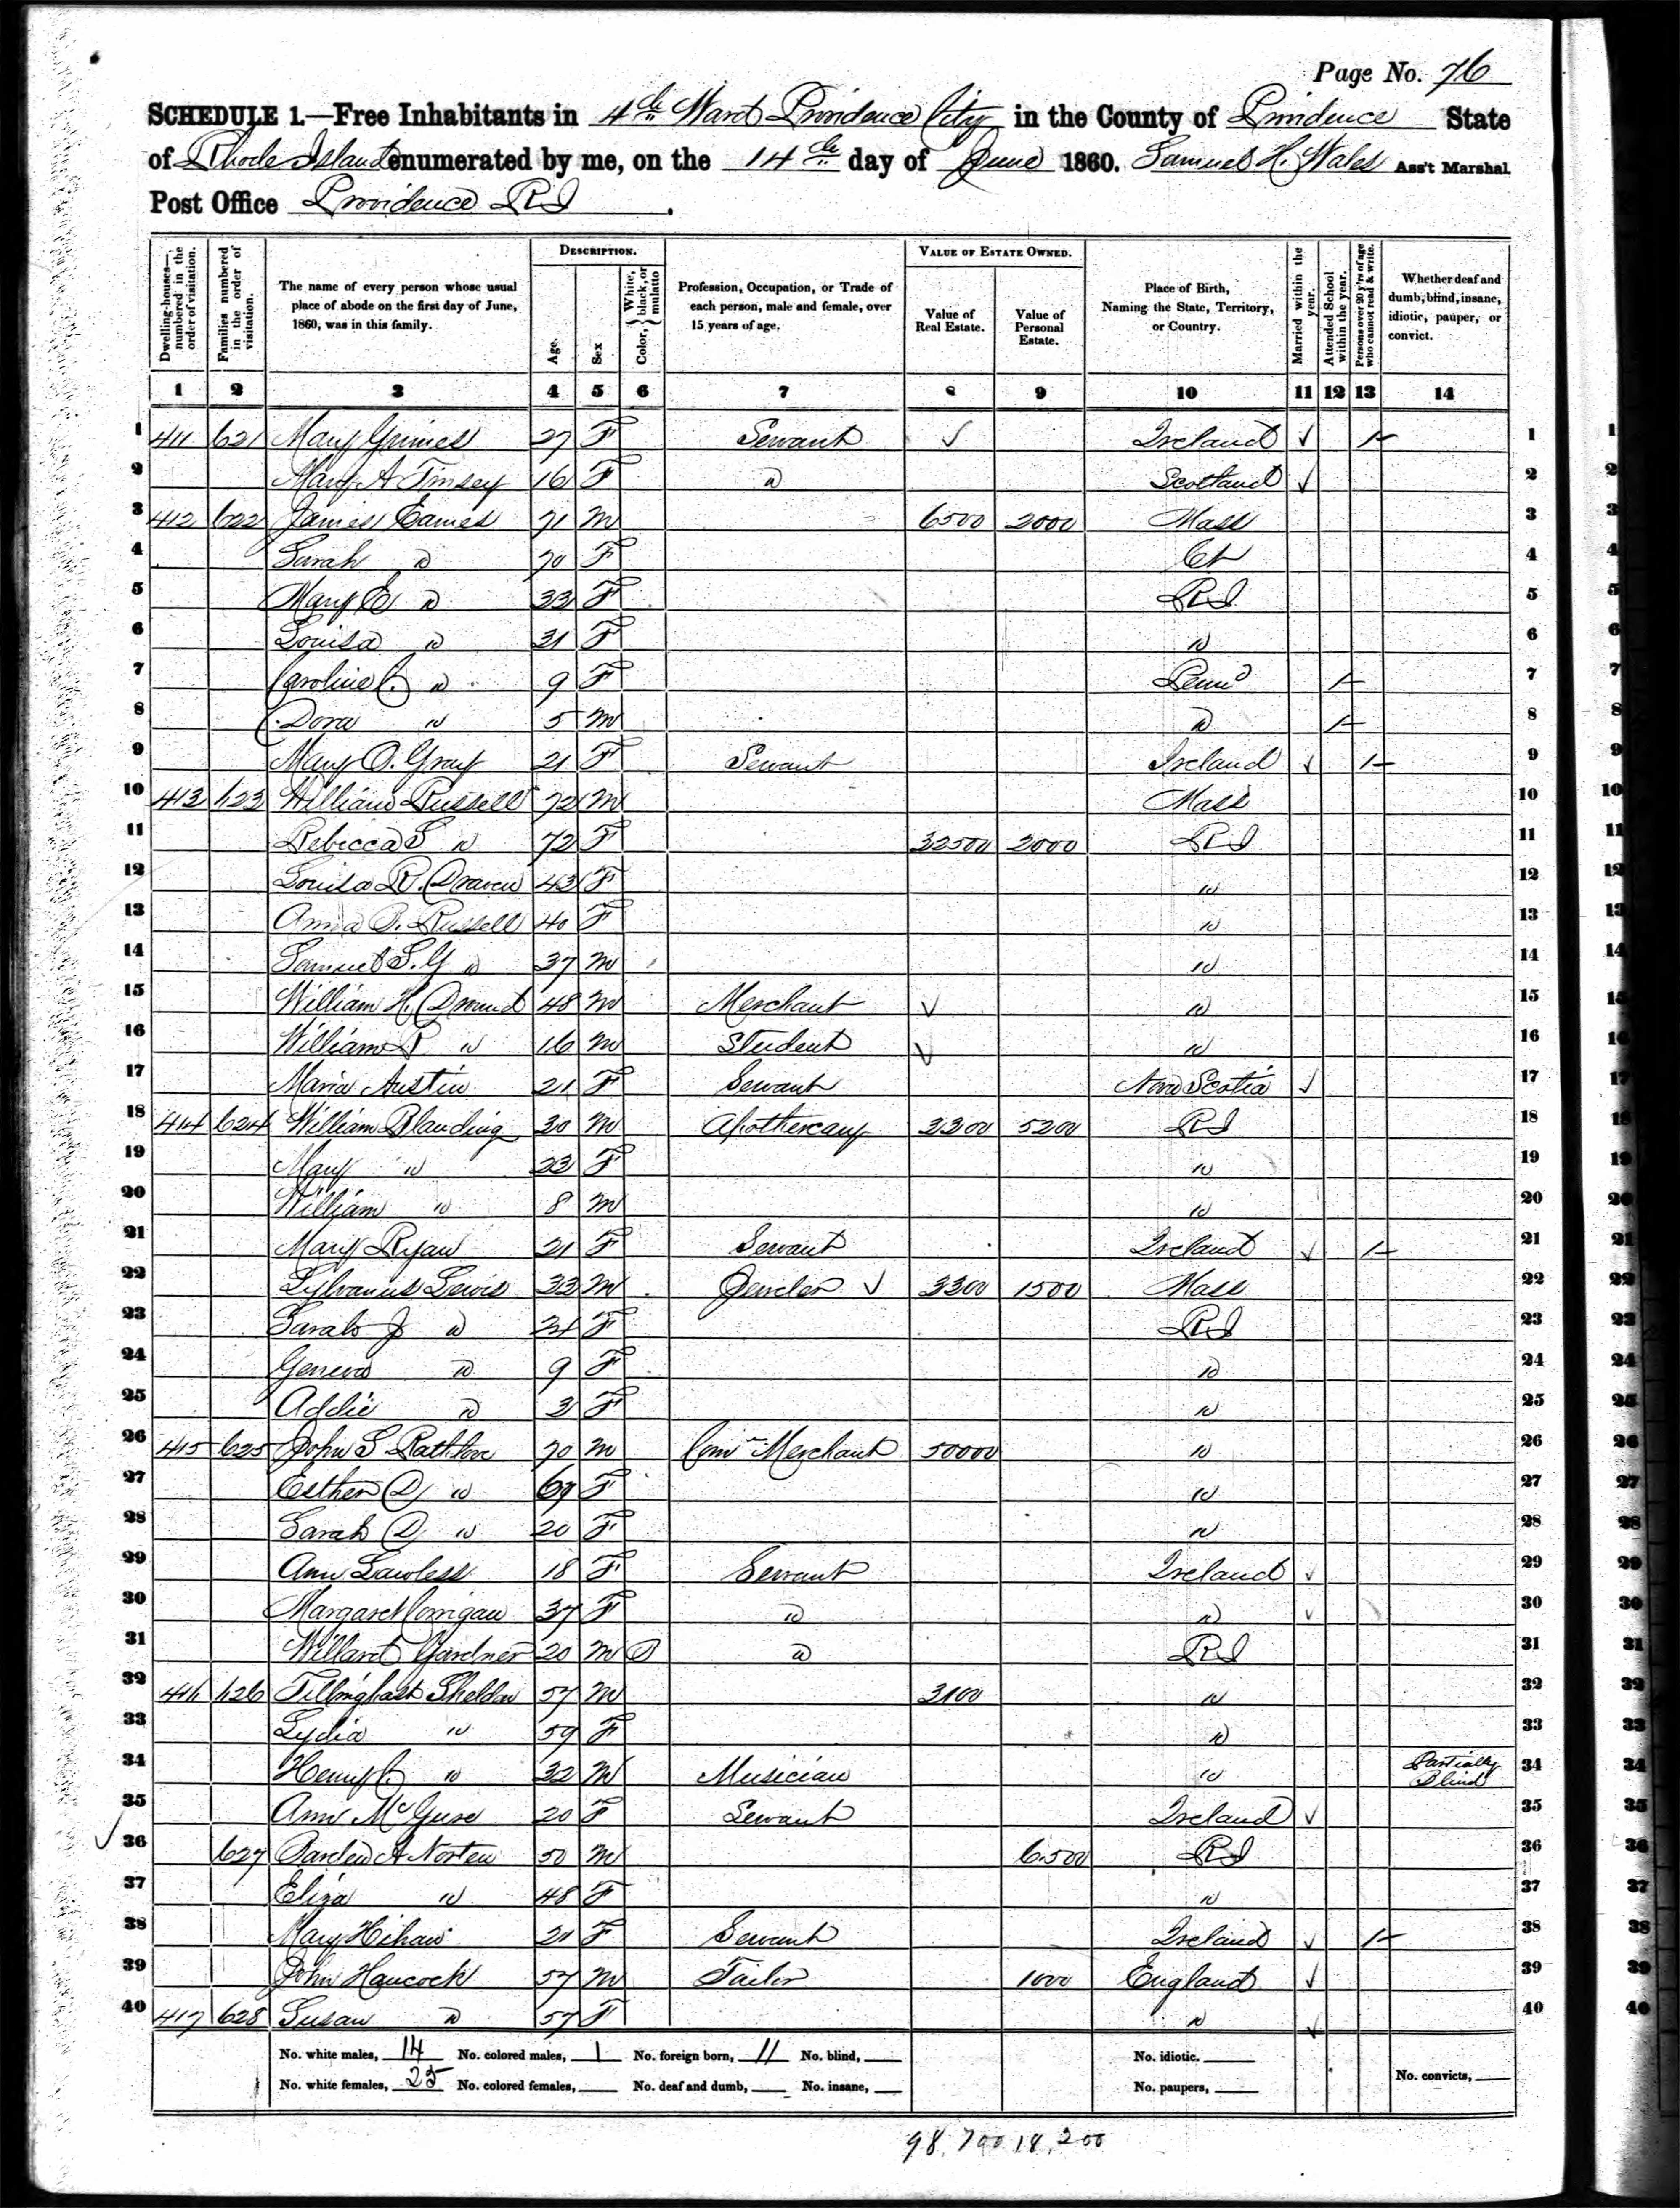 Page No. 76
SCHEDULE 1.—Free Inhabitants in 4th Ward Providence City in the County of Providence State
of Rhode Island enumerated by me, on the 14th day of June 1860. Samuel H. Wales Ass't Marshal.
Post Office Providence RI.
Dwelling-houses—numbered in the order of visitation. Families numbered in the order of visitation. The name of every person whose usual place of abode on the first day of June, 1860, was in this family. DESCRIPTION. Age. Sex Color, White, black, or mulatto Profession, Occupation, or Trade of each person, male and female, over 15 years of age. VALUE OF ESTATE OWNED. Value of Real Estate. Value of Personal Estate. Place of Birth, Naming the State, Territory, or Country. Married within the year. Attended School within the year. Persons over 20 y'rs of age who cannot read & write. Whether deaf and dumb, blind, insane, idiotic, pauper, or convict.
1 2 3 4 5 6 7 8 9 10 11 12 13 14
1 411 621 Mary Grimes 27 F Servant Ireland 1 1
2 Mary A Timsey 16 F " Scotland 2
3 412 622 James Eames 71 M 6500 2000 Mass 3
4 Sarah " 70 F Ct 4
5 Mary E " 33 F RI 5
6 Louisa " 31 F " 6
7 Caroline C. " 9 F Penn 1 7
8 Dora " 5 M " 1 8
9 Mary O. Gray 21 F Servant Ireland 1 9
10 413 623 William Russell 72 M Mass 10
11 Rebecca S " 72 F 32500 2000 RI 11
12 Louisa R. 43 F " 12
13 Anna P. Russell 40 F " 13
14 Samuel S. G " 37 M " 14
15 William H. 48 M Merchant " 15
16 William R " 16 M Student " 16
17 Maria Austin 21 F Servant Nova Scotia 17
18 414 624 William Blanding 30 M Apothecary 3300 5200 RI 18
19 Mary " 23 F " 19
20 William " 8 M " 20
21 Mary Ryan 21 F Servant Ireland 1 21
22 Sylvanus Lewis 33 M Jeweler 3300 1500 Mass 22
23 Sarah J " F RI 23
24 Geneva " 9 F " 24
25 Addie " 3 F " 25
26 415 625 John S Rathbone 70 M Com Merchant 50000 " 26
27 Esther D " 69 F " 27
28 Sarah D " 20 F " 28
29 Ann Lawless 18 F Servant Ireland 29
30 Margaret Corrigan 37 F " " 30
31 Willard Gardner 20 M B " RI 31
32 416 626 Tillinghast Sheldon 57 M 3100 " 32
33 Lydia " 59 F " 33
34 Henry C. " 32 M Musician " Partially Blind 34
35 Ann McGuire 20 F Servant Ireland 35
36 627 Darden A Norten 50 M 6500 RI 36
37 Eliza " 48 F " 37
38 Mary Hihan 21 F Servant Ireland 1 38
39 John Hancock 57 M Tailor 1000 England 39
40 417 628 Susan " 57 F " 40
No. white males, 14 No. colored males, 1 No. foreign born, 11 No. blind, No. idiotic.
No. white females, 25 No. colored females, No. deaf and dumb, No. insane, No. paupers, No. convicts,
98,700 18,200